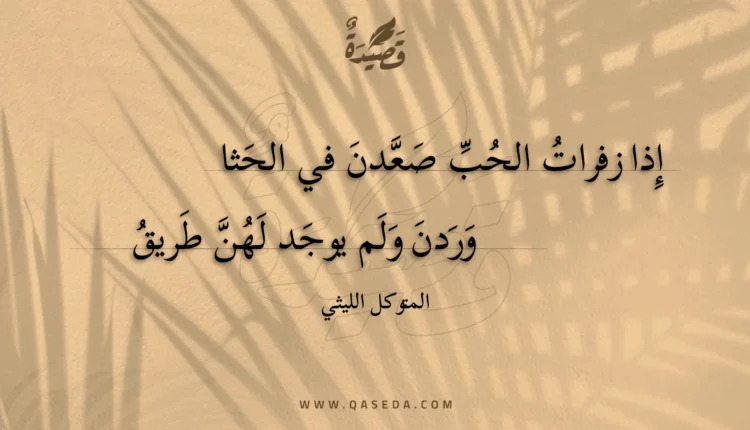 قَصِيْدَةٌ
إِذا زفراتُ الحُبِّ صَعَّدنَ في الحَثا
وَرَدنَ وَلَم يوجَد لَهُنَّ طَريقُ
المتوكل الليثي
WWW.QASEDA.COM